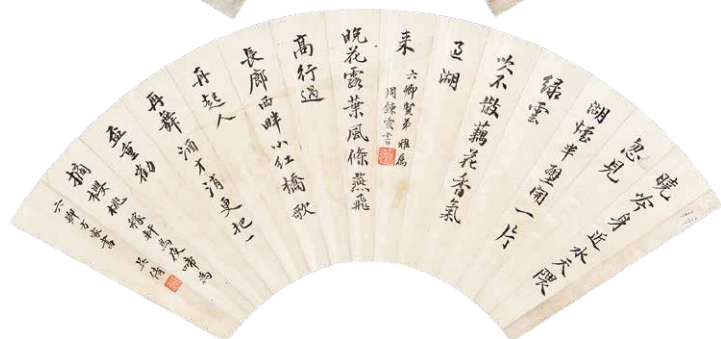 曉吟身近水天隈
忽見
湖煙半壁開一片
綠雲
吹不散藕花香氣
過湖
來
六卿賢弟雅屬
周鍊霞書
晚花露葉風條燕飛
高行過
長廊西畔小紅橋歌
再起人
再舞酒才消更把一
盃重勸
摘櫻桃 稼軒烏夜啼為
六卿方家書 吳倩